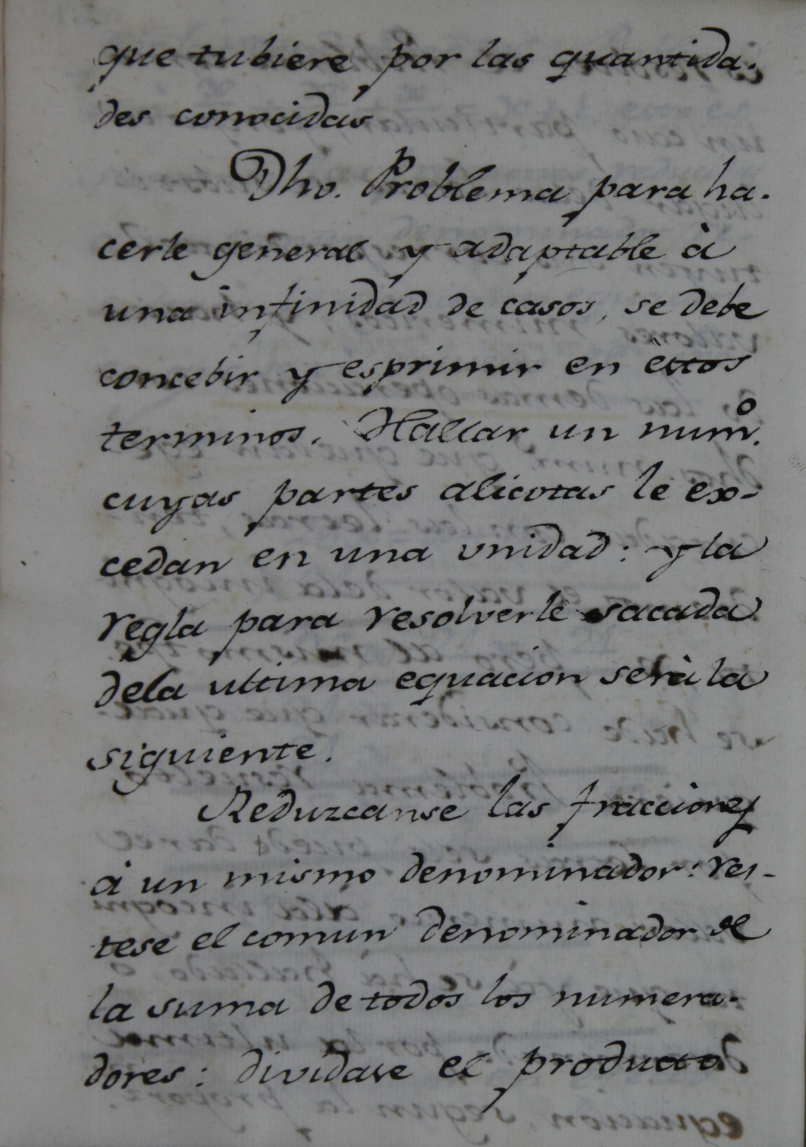 que tubiere por las quantida-
des conocidas
Dho. Problema para ha-
cerle general y adaptable à
una infinidad de casos, se debe
concebir y esprimir en estos
terminos. Hallar un numº.
cuyas partes alicotas le ex-
cedan en una vnidad: y la
regla para resolverle sacada
dela ultima equacion serà la
siguiente.
Reduzcanse las fracciones
à un mismo denominador: res-
tese el comun denominador de
la suma de todos los numera-
dores: dividase el producto